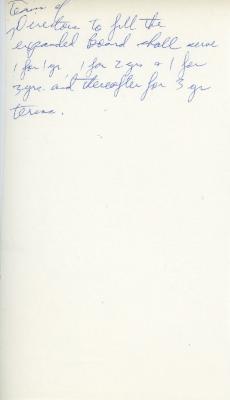 Term of
Directors to fill the
expanded Board shall serve
1 for 1 yr 1 for 2 yrs & 1 for
3 yrs. and thereafter for 3 yr
terms.